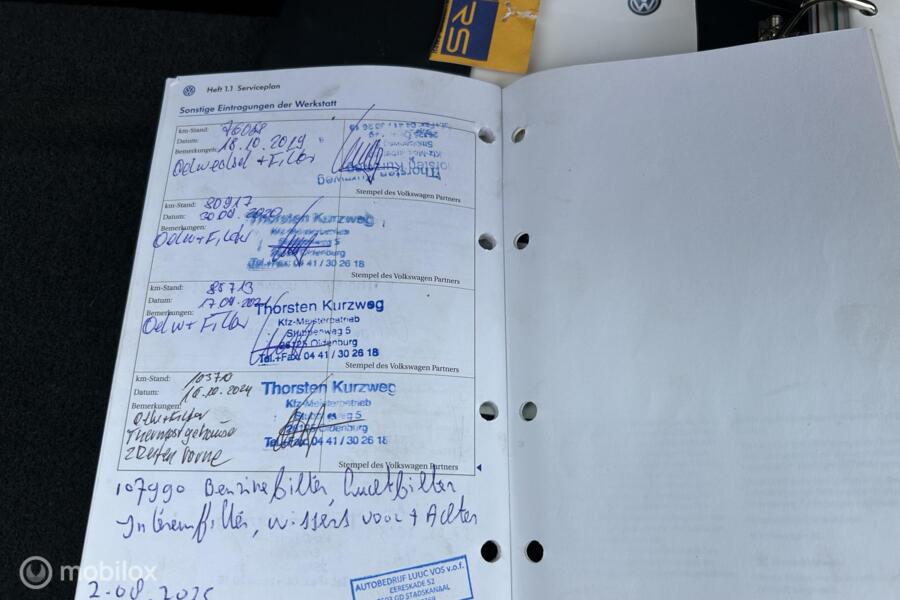 RS
Heft 1.1 Serviceplan
Sonstige Eintragungen der Werkstatt
km-Stand: 76068
Datum: 18.10.2019
Bemerkungen:
Oelwechsel + Filter
Thorsten Kurzweg
Stempel des Volkswagen Partners
km-Stand: 80917
Datum: 30.09.2020
Bemerkungen:
Oelw + Filter
Thorsten Kurzweg
Tel.+Fax: 04 41 / 30 26 18
Stempel des Volkswagen Partners
km-Stand: 85713
Datum: 17.09.2021
Bemerkungen:
Oelw + Filter
Thorsten Kurzweg
Kfz-Meisterbetrieb
26125 Oldenburg
Tel.+Fax: 04 41 / 30 26 18
Stempel des Volkswagen Partners
km-Stand: 103710
Datum: 16.10.2024
Bemerkungen:
Oelw + Filter
Thermostgehäuse
2 Reifen vorne
Thorsten Kurzweg
Kfz-Meisterbetrieb
26125 Oldenburg
Tel.+Fax: 04 41 / 30 26 18
Stempel des Volkswagen Partners
107990 Benzinefilter, Luchtfilter
Interieurfilter, wissers voor + Achter
AUTOBEDRIJF LUUC VOS v.o.f.
CERESKADE 52
GD STADSKANAAL
2.08.2025
mobilox